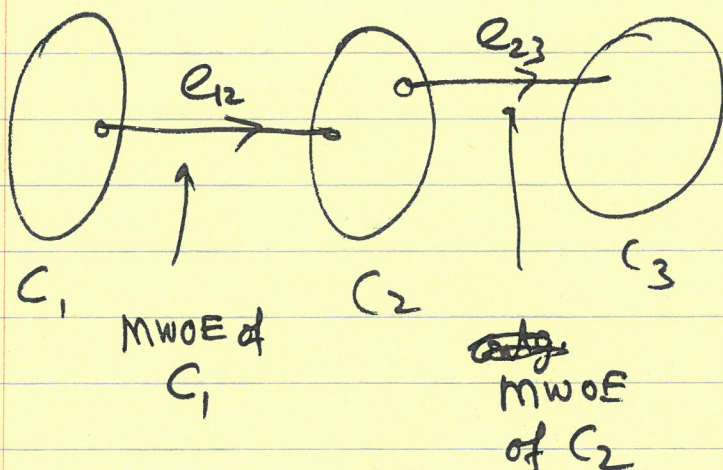 e₁₂
e₂₃
C₁
C₂
C₃
MWOE of
C₁
MWOE
of C₂